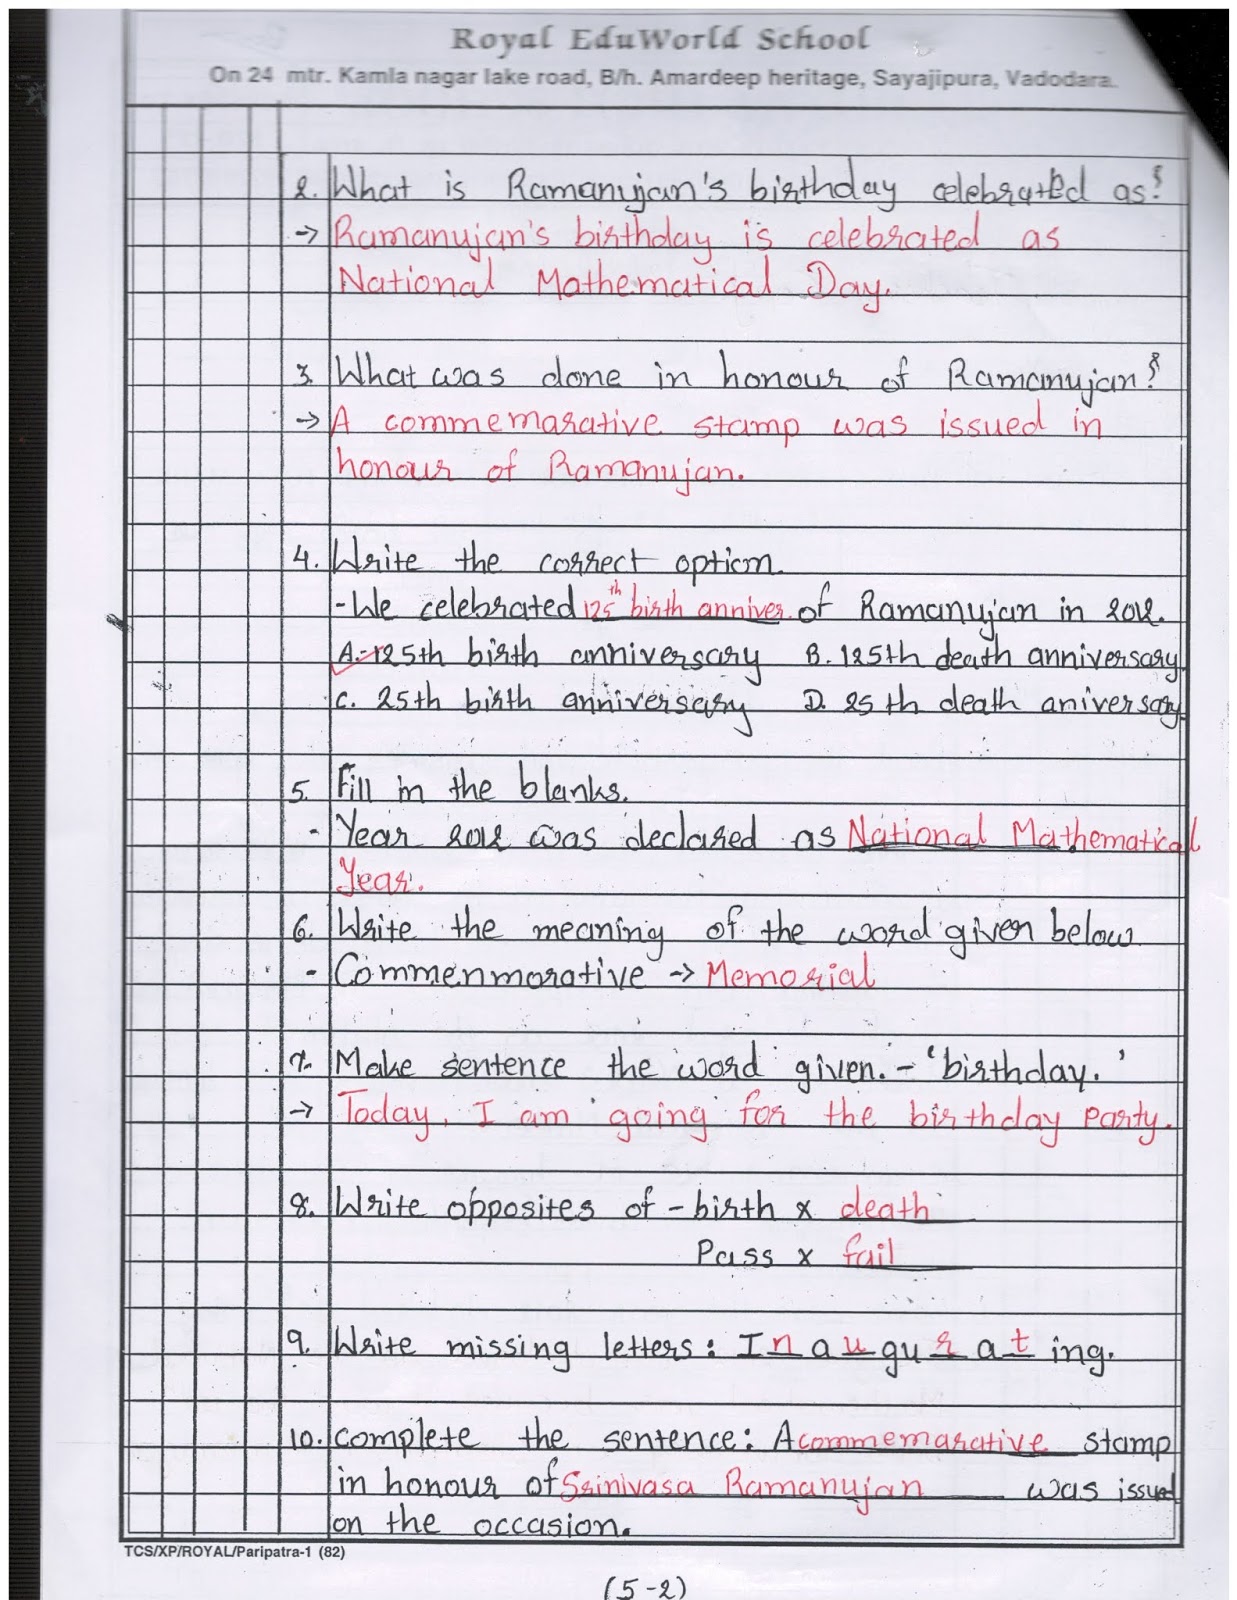 Royal EduWorld School
On 24 mtr. Kamla nagar lake road, B/h. Amardeep heritage, Sayajipura, Vadodara.
2. What is Ramanujan's birthday celebrated as?
→ Ramanujan's birthday is celebrated as
National Mathematical Day.
3. What was done in honour of Ramanujan?
→ A commemarative stamp was issued in
honour of Ramanujan.
4. Write the correct option.
- We celebrated 125th birth anniver. of Ramanujan in 2012.
A. 125th birth anniversary B. 125th death anniversary
C. 25th birth anniversary D. 25th death aniversary
5. Fill in the blanks.
- Year 2012 was declared as National Mathematical
Year.
6. Write the meaning of the word given below
- Commenmorative → Memorial
7. Make sentence the word given. - 'birthday.'
→ Today, I am going for the birthday party.
8. Write opposites of - birth x death
Pass x fail
9. Write missing letters: Inaugurating.
10. Complete the sentence: A commemarative stamp
in honour of Srinivasa Ramanujan was issued
on the occasion.
TCS/XP/ROYAL/Paripatra-1 (82)
(5-2)